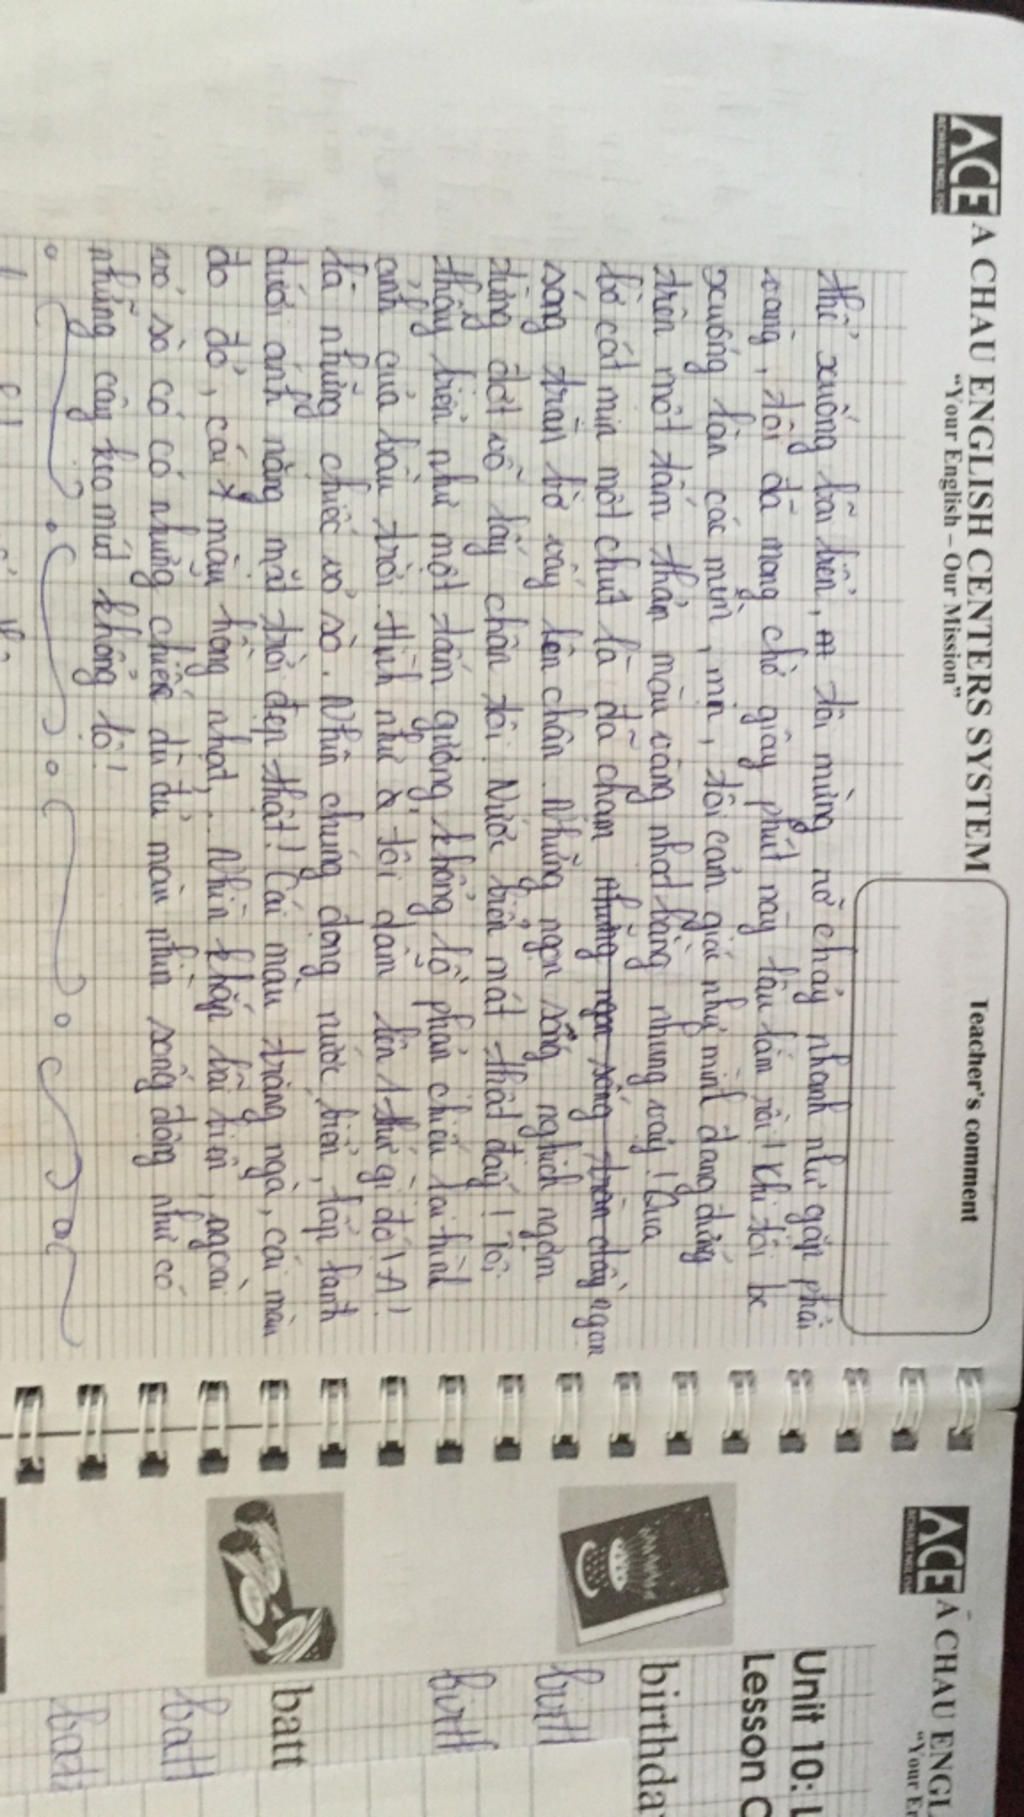 ACE
A CHAU ENGLISH CENTERS SYSTEM
"Your English – Our Mission"
Teacher's comment
thể xuống bãi biển, tôi mừng nở chảy nhanh như gặp phải
vàng, tôi đã mong chờ giây phút này lâu lắm rồi! Khi tôi bc
xuống làn các mềm, mịn, tôi cảm giác như mình đang đứng
trên một tấm thảm màu vàng nhạt bằng nhung vậy! Qua
bờ cát mịn một chút là đã chạm những ngọn sóng tràn chảy ngọn
sóng tràn bờ vây lên chân. Những ngọn sóng nghịch ngợm
từng đợt vỗ lấy chân tôi. Nước biển mát thật đấy! Tôi
thấy biển như một tấm gương khổng lồ phản chiếu lại hình
ảnh của bầu trời. Hình như tôi dẫm lên 1 thứ gì đó! A!
là những chiếc vỏ sò. Nhìn chúng dọng nước biển, lấp lanh
dưới ánh nắng mặt trời đẹp thật! Cái màu trắng ngà, cái màu
đo đỏ, cái màu hồng nhạt,... Nhìn khắp bãi biển, ngoài
vỏ sò có có những chiếc dù đủ màu nhìn sống động như có
những cây kẹo mút khổng lồ!
ACE
A CHAU ENGL
"Your En
Unit 10: L
Lesson C
birthda
birth
birth
batt
batt
batt